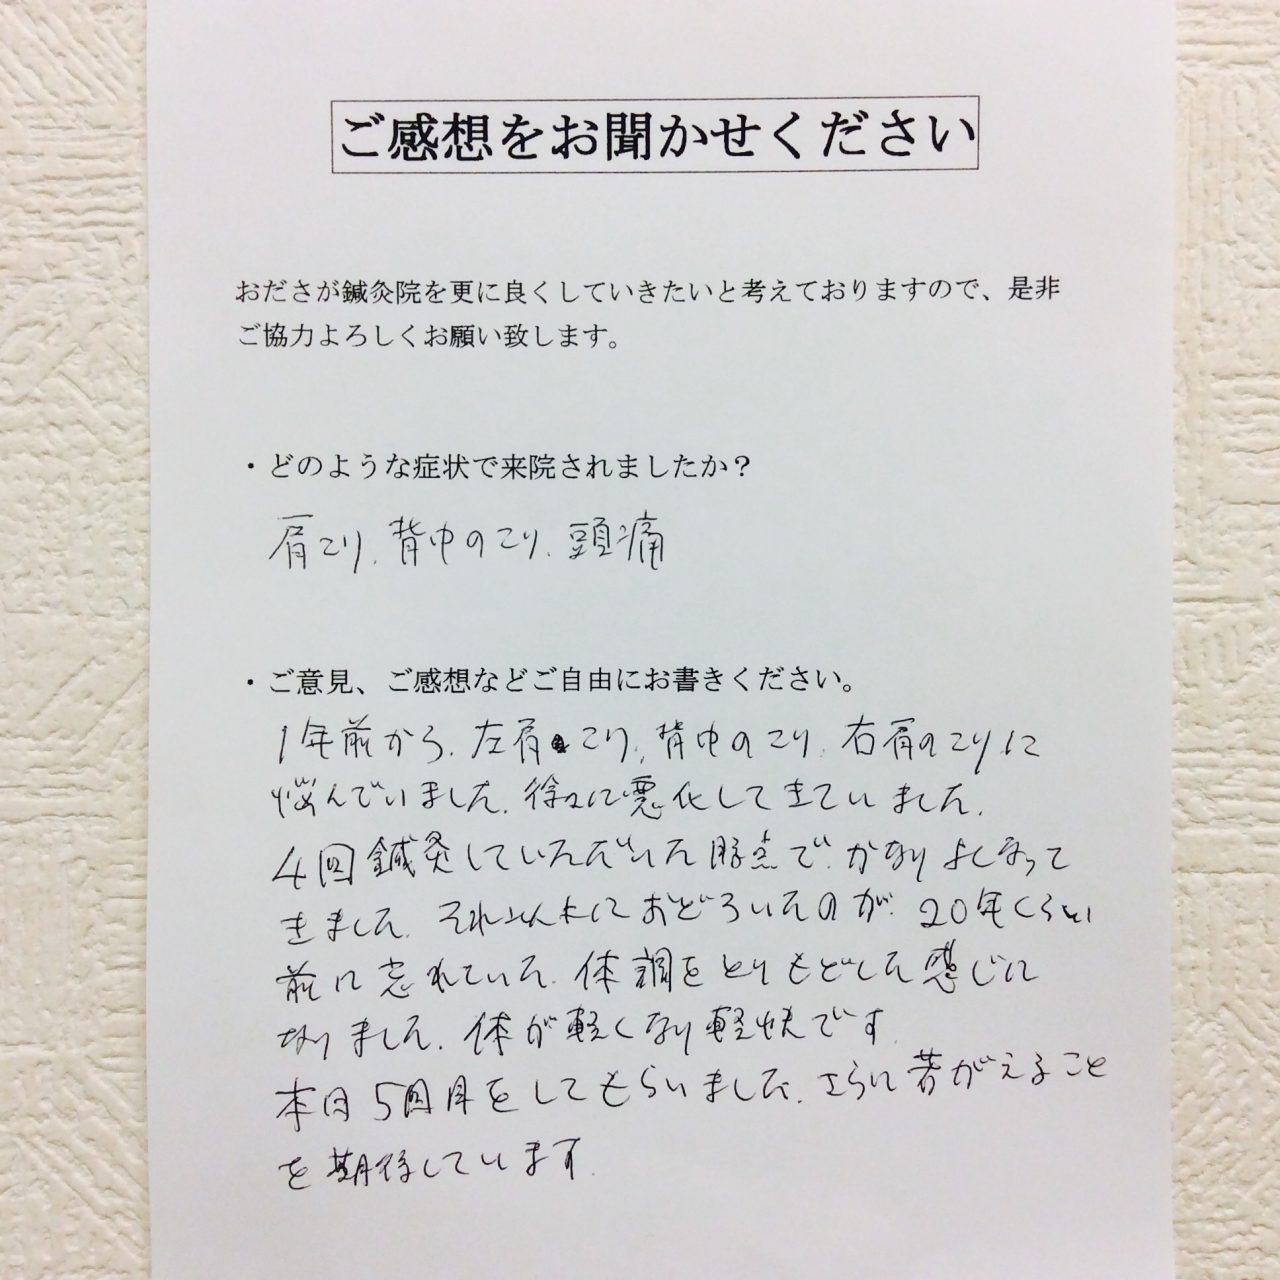 ご感想をお聞かせください
おださが鍼灸院を更に良くしていきたいと考えておりますので、是非
ご協力よろしくお願い致します。
・どのような症状で来院されましたか？
肩こり、背中のこり、頭痛
・ご意見、ご感想などご自由にお書きください。
1年前から、左肩こり、背中のこり、右肩のこりに
悩んでいました。徐々に悪化してきていました。
4回鍼灸していただいた時点で、かなりよくなって
きました。それ以上におどろいたのが、20年くらい
前に忘れていた、体調をとりもどした感じに
なりました。体が軽くなり軽快です。
本日5回目をしてもらいました。さらに若がえること
を期待しています。